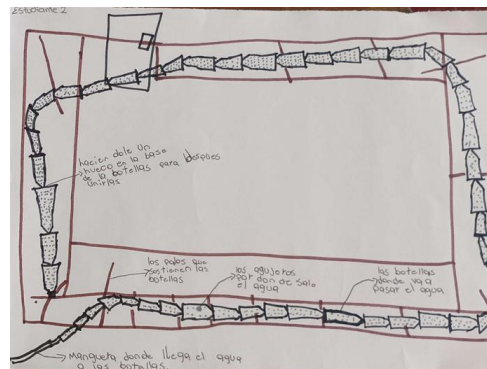 Estudiante 2
hacien dole un
hueco en la base
de la botellas para despues
unirlas
los palos que
sostienen las
botellas
los agujeros
por don de sale
el agua
las botellas
donde va a
pasar el agua
Manguera donde llega el agua
a las botellas.